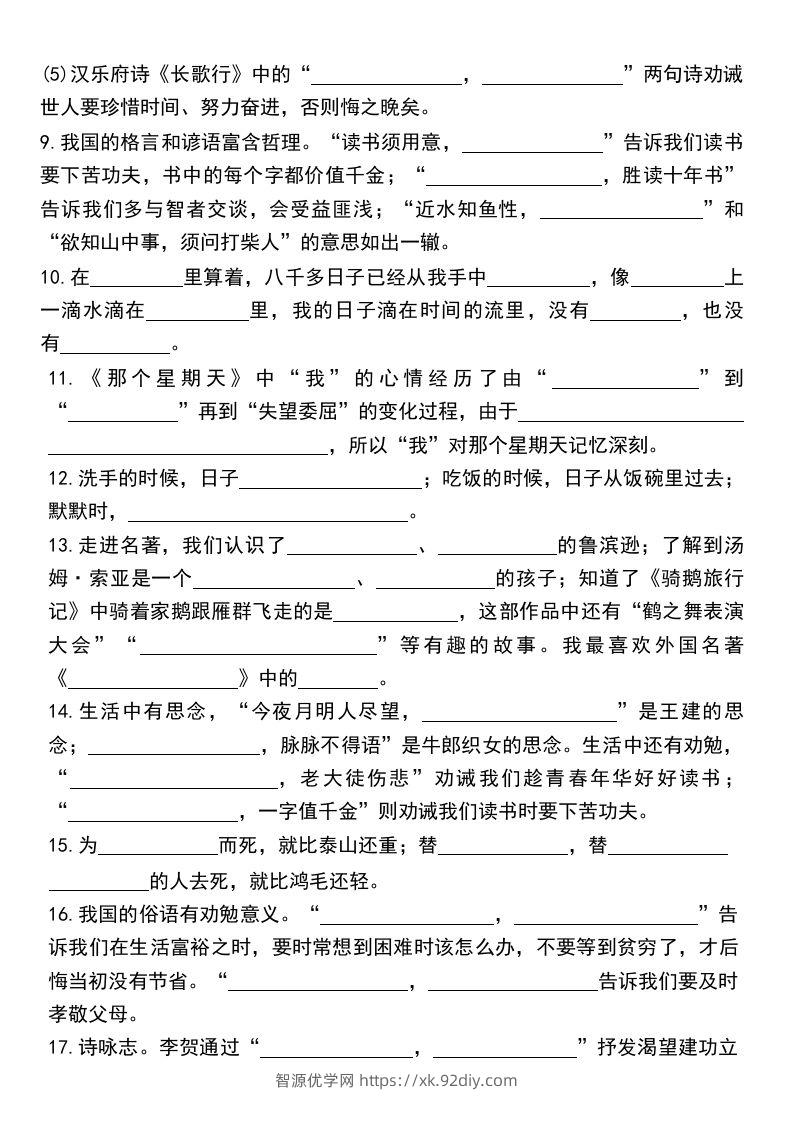 (5)汉乐府诗《长歌行》中的“______________，_____________”两句诗劝诫
世人要珍惜时间、努力奋进，否则悔之晚矣。
9.我国的格言和谚语富含哲理。“读书须用意，_____________”告诉我们读书
要下苦功夫，书中的每个字都价值千金；“________________，胜读十年书”
告诉我们多与智者交谈，会受益匪浅；“近水知鱼性，_______________”和
“欲知山中事，须问打柴人”的意思如出一辙。
10.在_________里算着，八千多日子已经从我手中__________，像_________上
一滴水滴在__________里，我的日子滴在时间的流里，没有_________，也没
有__________。
11.《那个星期天》中“我”的心情经历了由“______________”到
“__________”再到“失望委屈”的变化过程，由于_____________________
__________________________，所以“我”对那个星期天记忆深刻。
12.洗手的时候，日子_________________；吃饭的时候，日子从饭碗里过去；
默默时，__________________________。
13.走进名著，我们认识了____________、___________的鲁滨逊；了解到汤
姆·索亚是一个_______________、___________的孩子；知道了《骑鹅旅行
记》中骑着家鹅跟雁群飞走的是____________，这部作品中还有“鹤之舞表演
大会”“______________________”等有趣的故事。我最喜欢外国名著
《________________》中的________。
14.生活中有思念，“今夜月明人尽望，__________________”是王建的思
念；________________，脉脉不得语”是牛郎织女的思念。生活中还有劝勉，
“___________________，老大徒伤悲”劝诫我们趁青春年华好好读书；
“________________，一字值千金”则劝诫我们读书时要下苦功夫。
15.为___________而死，就比泰山还重；替____________，替___________
_________的人去死，就比鸿毛还轻。
16.我国的俗语有劝勉意义。“________________，_________________”告
诉我们在生活富裕之时，要时常想到困难时该怎么办，不要等到贫穷了，才后
悔当初没有节省。“_________________，________________告诉我们要及时
孝敬父母。
17.诗咏志。李贺通过“______________，_____________”抒发渴望建功立
智源优学网 https://xk.92diy.com